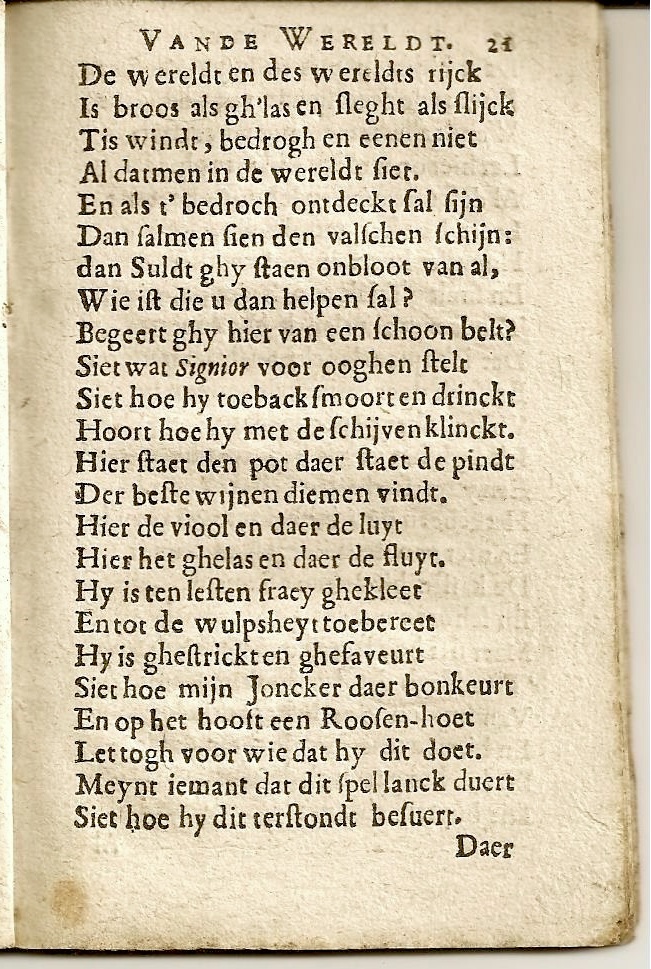 VANDE WERELDT. 21
De wereldt en des wereldts rijck
Is broos als gh'las en ſleght als ſlijck
Tis windt, bedrogh en eenen niet
Al datmen in de wereldt ſiet.
En als t' bedroch ontdeckt ſal ſijn
Dan ſalmen ſien den valſchen ſchijn:
dan Suldt ghy ſtaen onbloot van al,
Wie iſt die u dan helpen ſal?
Begeert ghy hier van een ſchoon belt?
Siet wat Signior voor ooghen ſtelt
Siet hoe hy toeback ſmoort en drinckt
Hoort hoe hy met de ſchijven klinckt.
Hier ſtaet den pot daer ſtaet de pindt
Der beſte wijnen diemen vindt.
Hier de viool en daer de luyt
Hier het ghelas en daer de fluyt.
Hy is ten leſten fraey ghekleet
En tot de wulpsheyt toebereet
Hy is gheſtrickt en ghefaveurt
Siet hoe mijn Joncker daer bonkeurt
En op het hooft een Rooſen-hoet
Let togh voor wie dat hy dit doet.
Meynt iemant dat dit ſpel lanck duert
Siet hoe hy dit terſtondt beſuert.
Daer